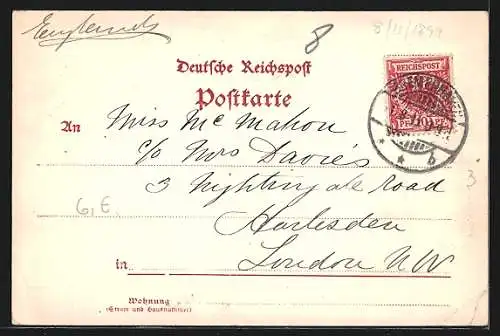 England
8
8/11/1899
Deutsche Reichspost
REICHSPOST
Postkarte
10
An Miss Mc Mahon
c/o Mrs Davies
3 Nightingale Road
3
G, E.
Harlesden
London NW
in
* * b
Wohnung
(Straße und Hausnummer)